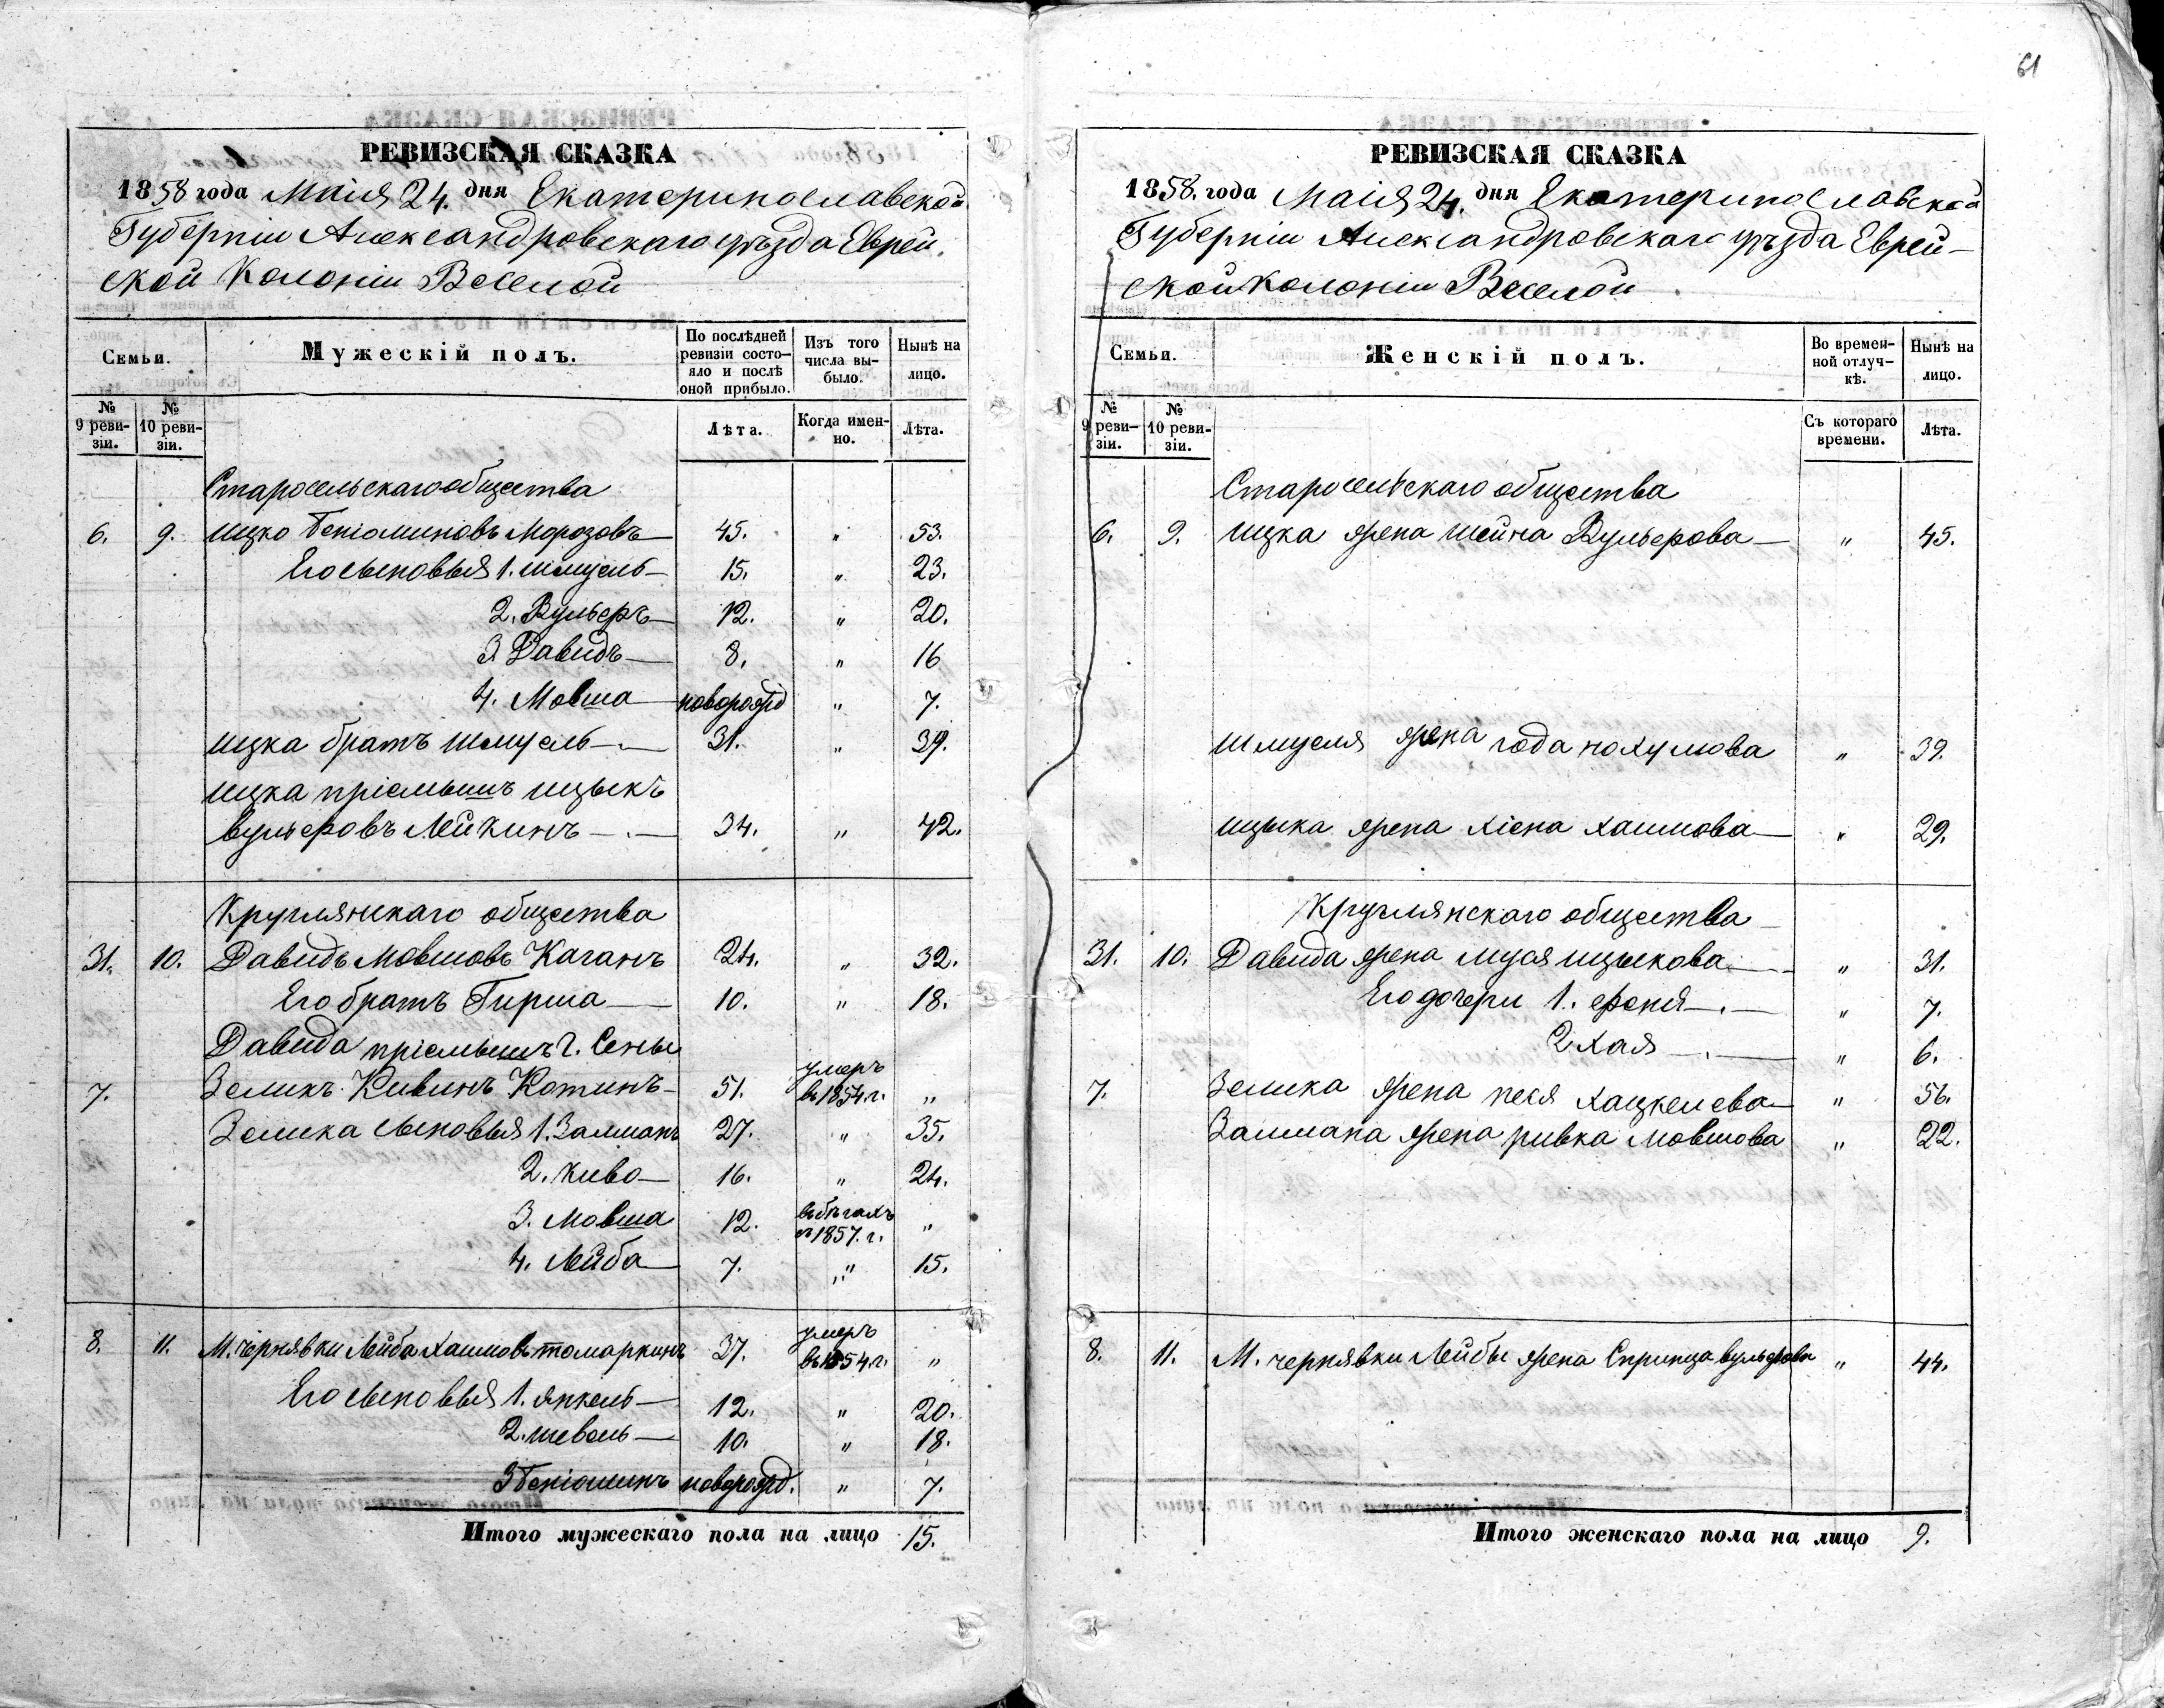 61
РЕВИЗСКАЯ СКАЗКА
1858 года Маія 24. дня Екатеринославской
Губерніи Александровскаго уѣзда Еврей-
ской Колоніи Веселой
Семьи.
Мужескій полъ.
По послѣдней ревизіи состояло и послѣ оной прибыло.
Изъ того числа выбыло.
Нынѣ на лицо.
№ 9 ревизіи.
№ 10 ревизіи.
Лѣта.
Когда именно.
Лѣта.
Старосельскаго общества
6. 9. Ицко Беніоминовъ Морозовъ 45. „ 53.
Его сыновья 1. Шмуель 15. „ 23.
2. Вульфъ 12. „ 20.
3. Давидъ 8. „ 16
4. Мовша новорожд „ 7.
Ицка братъ Шмуель 31. „ 39.
Ицка пріемышъ Ицыкъ
Вульфовъ Лейкинъ 34. „ 42.
Круглянскаго общества
31. 10. Давидъ Мовшовъ Каганъ 24. „ 32.
Его братъ Гирша 10. „ 18.
Давида пріемышъ Сены
7. Зеликъ Кивинъ Котинъ 51. умеръ въ 1854. г. „
Зелика сыновья 1. Залманъ 27. „ 35.
2. Кива 16. „ 24.
3. Мовша 12. въ бѣгахъ съ 1857. г. „
4. Лейба 7. „ 15.
8. 11. М. Чернявки Лейба Хаимовъ Томаркинъ 37. умеръ въ 1854. г. „
Его сыновья 1. Янкель 12. „ 20.
2. Шевель 10. „ 18.
3 Беніоминъ новорожд. „ 7.
Итого мужескаго пола на лицо 15.
РЕВИЗСКАЯ СКАЗКА
1858. года Маія 24. дня Екатеринославской
Губерніи Александровскаго уѣзда Еврей-
ской колоніи Веселой
Семьи.
Женскій полъ.
Во временной отлучкѣ.
Нынѣ на лицо.
№ 9 ревизіи.
№ 10 ревизіи.
Съ котораго времени.
Лѣта.
Старосельскаго общества
6. 9. Ицка жена Шейна Вульфова „ 45.
Шмуеля жена Года Нохумова „ 39.
Ицыка жена Хіена Хаимова „ 29.
Круглянскаго общества
31. 10. Давида жена Муся Ицыкова „ 31.
Его дочери 1. Феня „ 7.
2 Хая „ 6.
7. Зелика жена Песя Хацкелева „ 56.
Залмана жена Ривка Мовшова „ 22.
8. 11. М. Чернявки Лейбы жена Спринца Вульфова „ 44.
Итого женскаго пола на лицо 9.